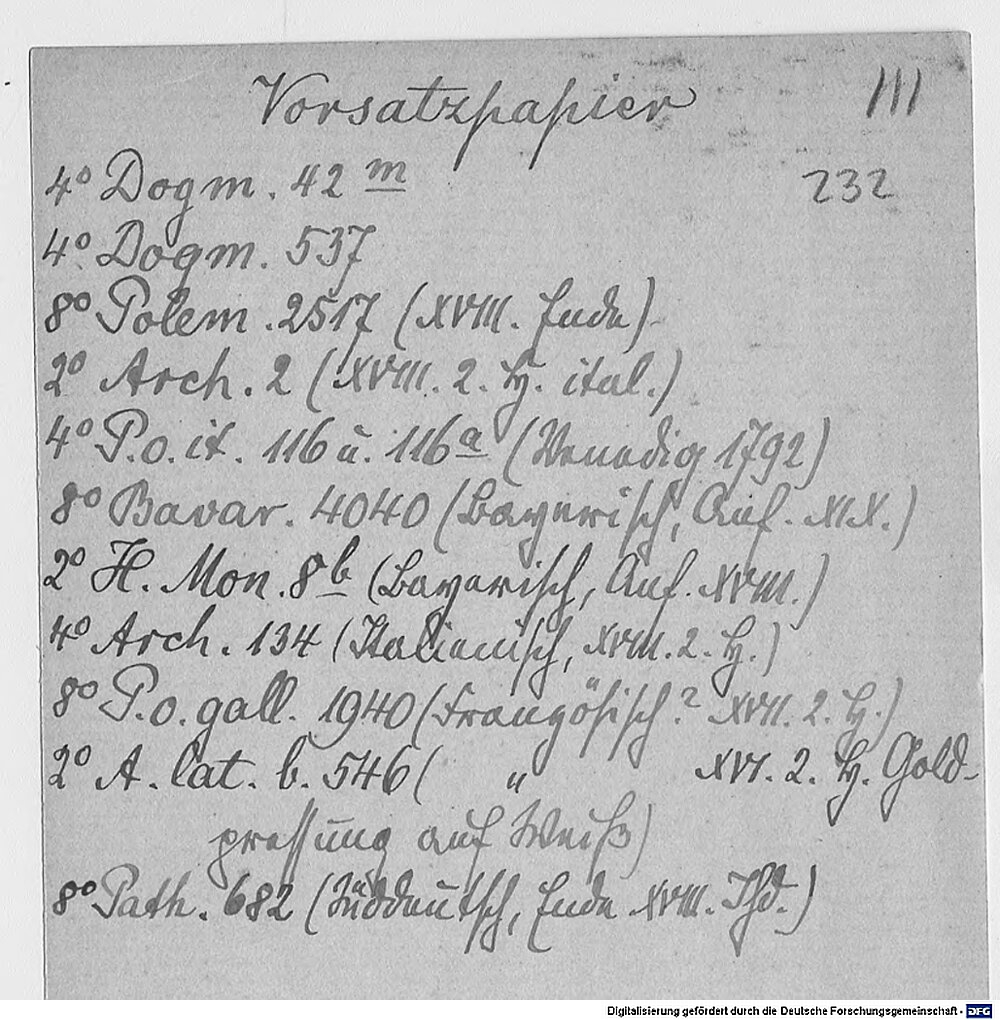 Vorsatzpapier
111
232
4° Dogm. 42 m
4° Dogm. 537
8° Polem. 2517 (XVIII. Ende)
2° Arch. 2 (XVIII. 2. H. ital.)
4° P.o. it. 116 u. 116a (Venedig 1792)
8° Bavar. 4040 (Bayerisch, Anf. XIX.)
2° H. Mon. 8b (Bayerisch, Anf. XVIII.)
4° Arch. 134 (Italienisch, XVIII. 2. H.)
8° P.o. gall. 1940 (Französisch? XVII. 2. H.)
2° A. lat. b. 546 ( " XVI. 2. H. Gold-
pressung auf Weiß)
8° Path. 682 (Süddeutsch, Ende XVIII. Jhd.)
Digitalisierung gefördert durch die Deutsche Forschungsgemeinschaft - DFG